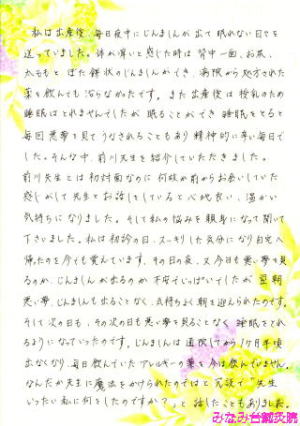 私は出産後、毎日夜中にじんましんが出て眠れない日々を
送っていました。体が痒いと感じた時は背中一面、お尻、
太ももとまた鎖状のじんましんができ、病院から処方された
薬を飲んでも治らなかったです。また出産後は授乳のため
睡眠はとれませんでしたが眠ることができ睡眠をとると
毎回悪夢を見てうなされることもあり精神的に辛い毎日で
した。そんな中、前川先生を紹介していただきました。
前川先生とは初対面なのに何故か前からお会いしていた
感じがして先生とお話をしていると心地良い、温かい
気持ちになりました。そして私の悩みを親身になって聞いて
下さいました。私は初診の日、スッキリした気分になり自宅へ
帰ったのを今でも覚えています。その日の夜、又今日も悪い夢を見
るのか、じんましんが出るのか不安でいっぱいでしたが翌朝
悪い夢、じんましんも出ることなく、気持ちよく朝を迎えられたのです。
そして次の日も、その次の日も悪い夢を見ることなく睡眠をとれ
るようになっていったのです。じんましんは通院してから1ヶ月半頃
出なくなり、毎日飲んでいたアレルギーの薬を今は飲んでいません。
なんだか先生に魔法をかけられたのではと冗談で「先生
いったい私に何をしたのですか?」と話したこともありました。
みなみ台鍼灸院